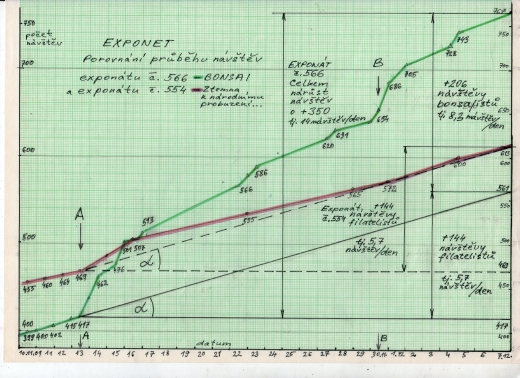 počet
návštěv
EXPONET
Porovnání průběhu návštěv
exponátu č. 566 BONSAI
a exponátu č. 554 Ztemna
k národnímu
probuzení...
EXPONÁT
č. 566
Celkem
nárůst
návštěv
o +350
tj. 14 návštěv/den
+206
návštěvy
bonsaistů
tj 8,2 návštěv
/den
Exponát
č. 554
+144
návštěvy
filatelistů
tj. 5,7
návštěv/den
+144
návštěvy
filatelistů
tj. 5,7
návštěv
/den
A
B
α
α
750
700
600
500
400
767
650
613
561
550
450
417
400
749
728
705
686
654
631
620
586
566
513
507
501
476
462
417
415
402
455
460
464
469
535
565
572
10.11.09 11 12 13 14 15 16 17 18 19 20.11 21 22 23 24 25 26 27 28 29 30.11 1.12 2 3 4 5 6 7.12.
A
datum
B